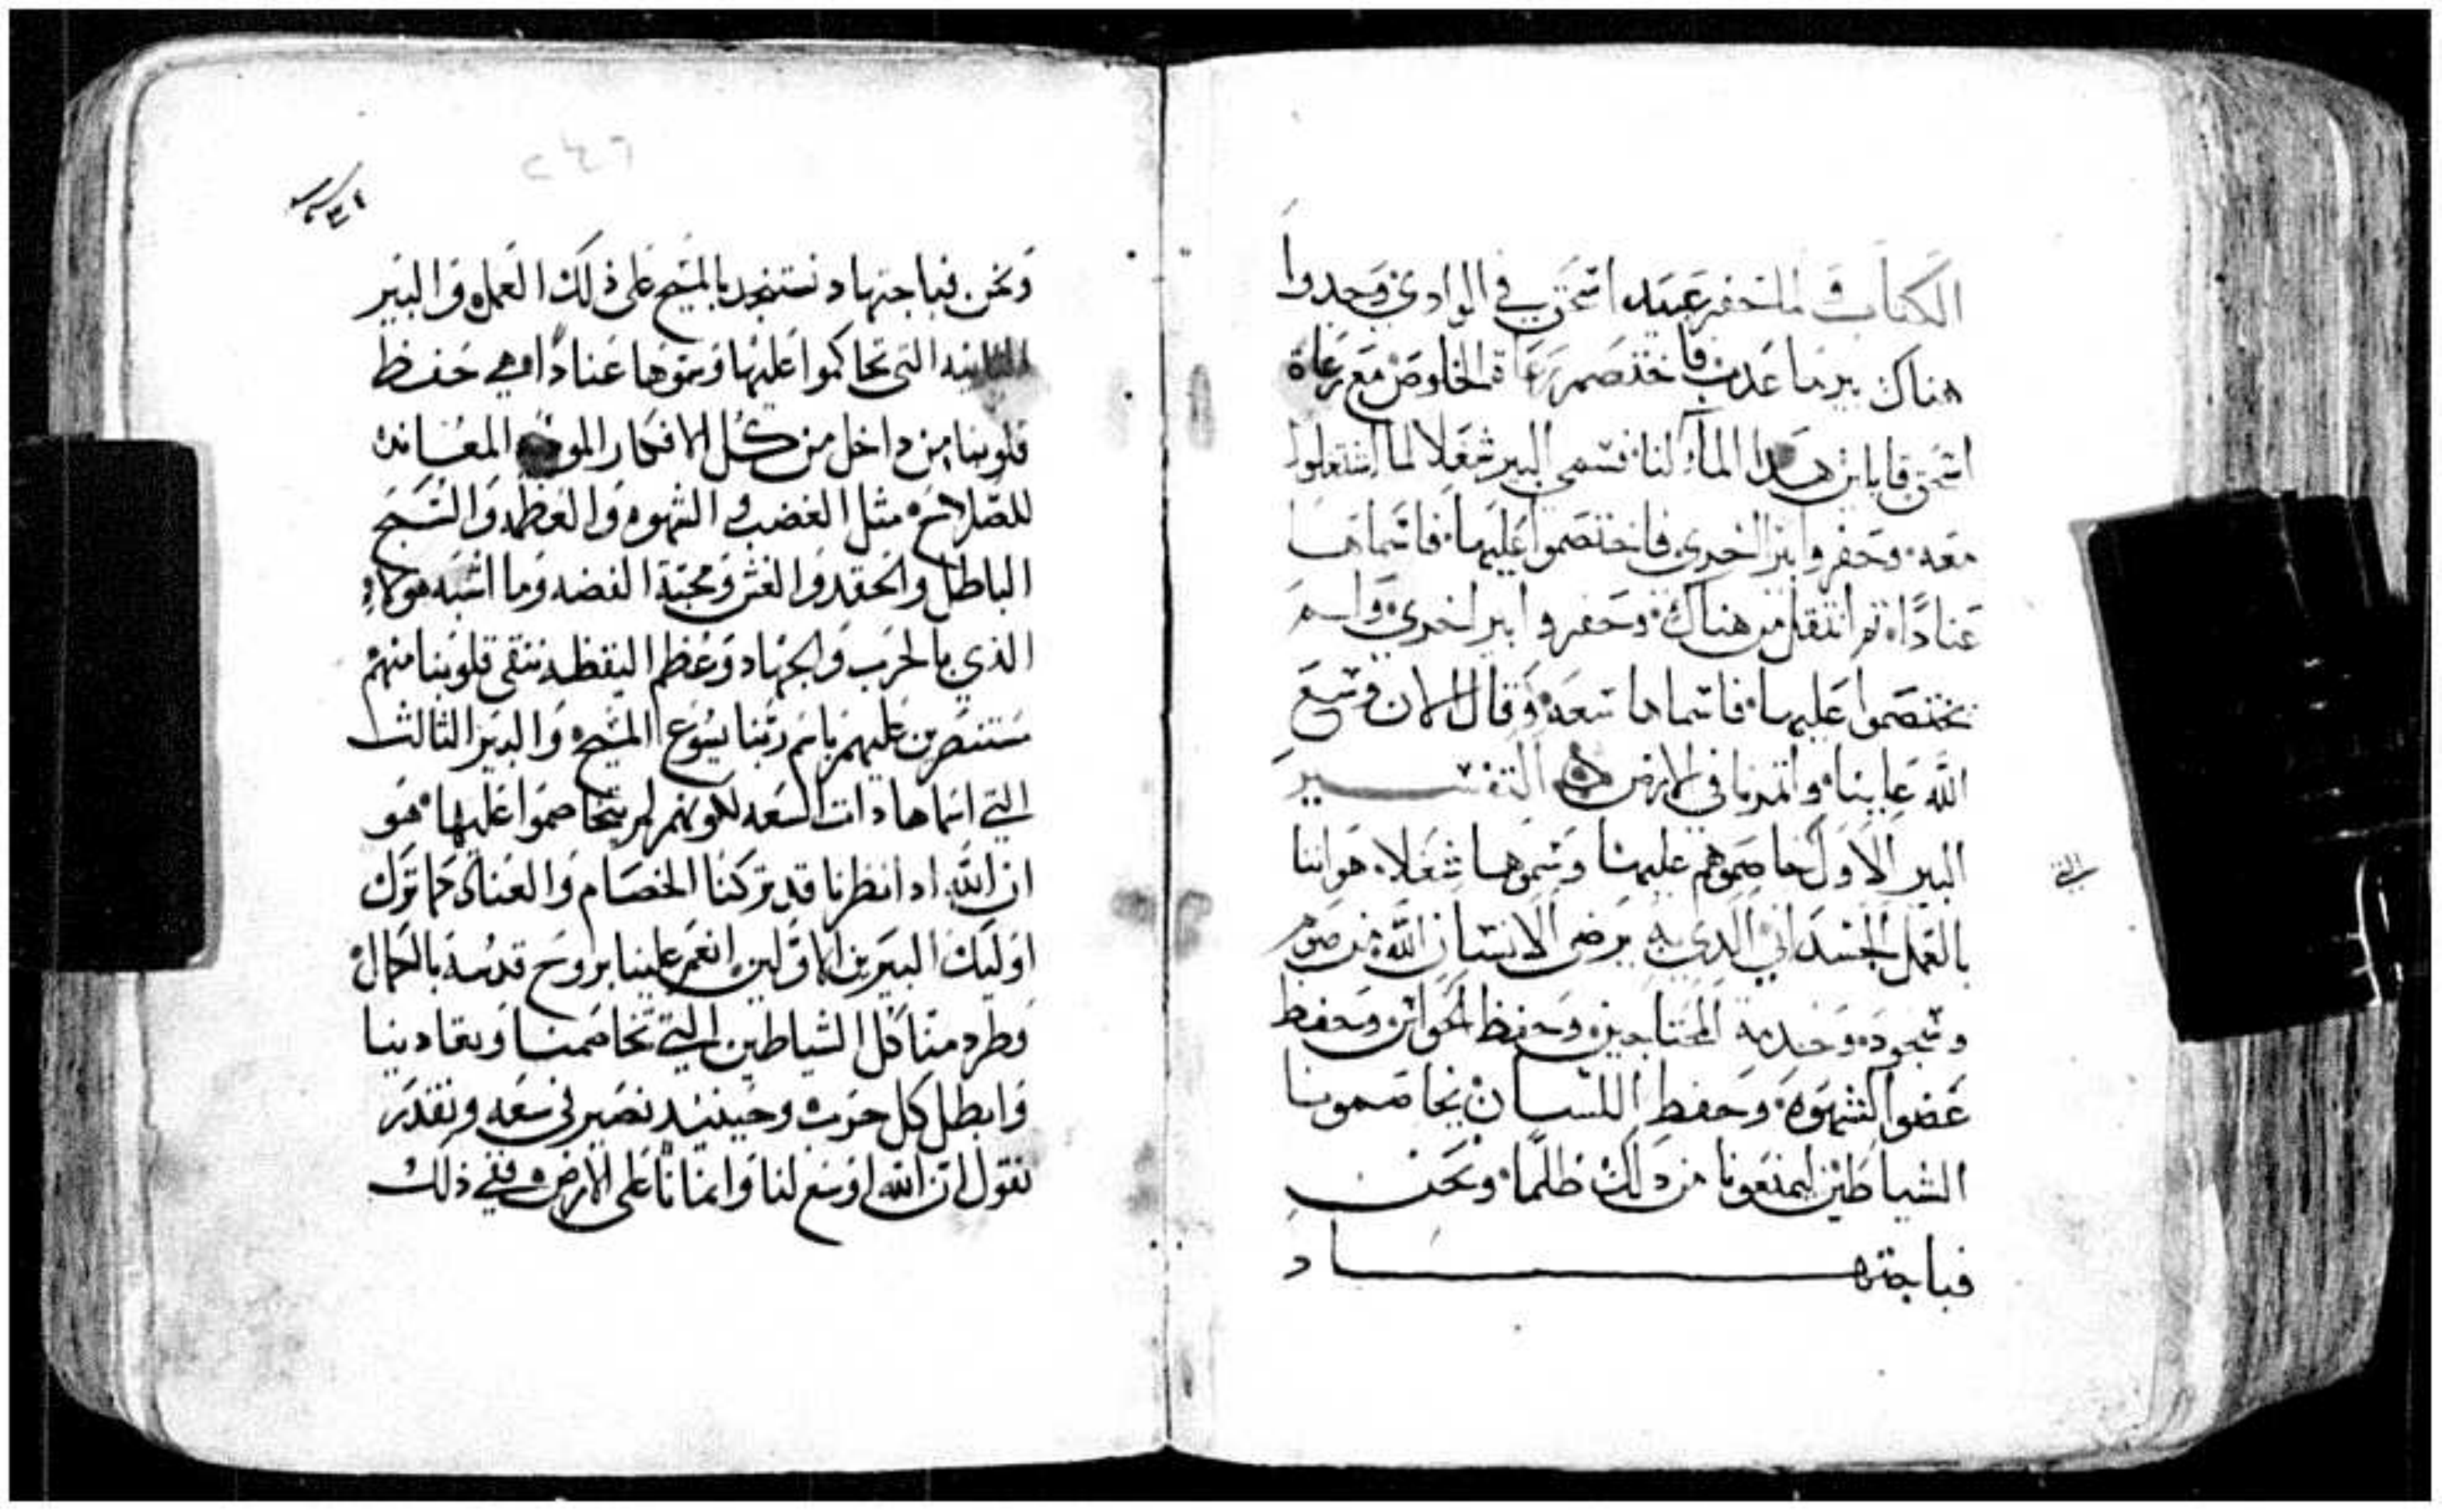 الكتاب ولما حفر عبيد اسحق في الوادي وجدوا
هناك بير ما عدب فاختصم رعاة الخلوص مع رعاة
اسحق قايلين هدا الماء لنا فسمي البير شغلا لما اشتغلوا
معه وحفروا بير اخري فاختصموا عليها فاسماها
عنادًا ثم انتقل من هناك وحفروا بير اخري ولم
يختصموا عليها فاسماها سعه وقال الان وسع
الله علينا وانمانا في الارض التفسير
البير الاول خاصموهم عليها وسموها شغلا هو اننا
بالعمل الجسداني الدي به يرضى الانسان الله من صوم
وسجود وخدمة المحتاجين وحفظ الحواس وحفظ
عضوا الشهوه وحفظ اللسان يخاصمونا
الشياطين ليمنعونا من دلك ظلمًا ونحن
فباجتهاد
ونحن فباجتهاد نستنجد بالمسيح على ذلك العمل والبير
الثانيه التي تحاكموا عليها وسموها عنادًا هي حفظ
قلوبنا من داخل من كل الافكار المعانده
للصلاح مثل الغضب والشهوه والعظمه والسبح
الباطل والحقد والغش ومحبة الفضه وما اشبه هولاء
الذي بالحرب والجهاد وعظم اليقظه ننقي قلوبنا منهم
مستنصرين عليهم باسم ربنا يسوع المسيح والبير الثالث
التي اسماها دات السعه لكونهم لم يتخاصموا عليها هو
ان الله ادا نظرنا قد تركنا الخصام والعناد كما ترك
اوليك البيرين الاولين انعم علينا بروح قدسه بالكمال
وطرد منا كل الشياطين التي تخاصمنا وتعادينا
وابطل كل حرب وحينيد نصير في سعه ونقدر
نقول ان الله اوسع لنا وانمانا على الارض ففي ذلك